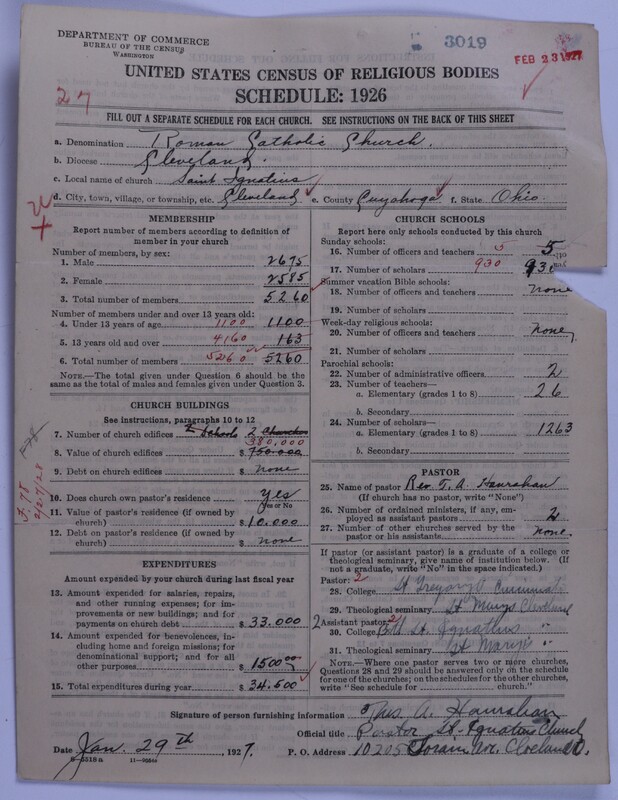 DEPARTMENT OF COMMERCE
BUREAU OF THE CENSUS
WASHINGTON
3019
FEB 23 1927
UNITED STATES CENSUS OF RELIGIOUS BODIES
SCHEDULE: 1926
27
FILL OUT A SEPARATE SCHEDULE FOR EACH CHURCH. SEE INSTRUCTIONS ON THE BACK OF THIS SHEET
a. Denomination Roman Catholic Church.
b. Diocese Cleveland.
c. Local name of church Saint Ignatius
d. City, town, village, or township, etc. Cleveland e. County Cuyahoga f. State Ohio.
MEMBERSHIP
Report number of members according to definition of
member in your church
Number of members, by sex:
1. Male 2675
2. Female 2585
3. Total number of members 5260
Number of members under and over 13 years old:
4. Under 13 years of age 1100 1100
5. 13 years old and over 4160 163
6. Total number of members 5260 5260
NOTE.—The total given under Question 6 should be
the same as the total of males and females given under Question 3.
CHURCH BUILDINGS
See instructions, paragraphs 10 to 12
7. Number of church edifices 2 Schools 2 Churches
380,000
8. Value of church edifices $ 750.000
9. Debt on church edifices $ none
10. Does church own pastor's residence yes
Yes or No
11. Value of pastor's residence (if owned by
church) $ 10.000
12. Debt on pastor's residence (if owned by
church) $ none
EXPENDITURES
Amount expended by your church during last fiscal year
13. Amount expended for salaries, repairs,
and other running expenses; for
improvements or new buildings; and for
payments on church debt $ 33.000
14. Amount expended for benevolences, in-
cluding home and foreign missions; for
denominational support; and for all
other purposes $ 1500 00
15. Total expenditures during year $ 34.500
CHURCH SCHOOLS
Report here only schools conducted by this church
Sunday schools:
16. Number of officers and teachers 5 5
17. Number of scholars 930 930
Summer vacation Bible schools:
18. Number of officers and teachers none
19. Number of scholars
Week-day religious schools:
20. Number of officers and teachers none
21. Number of scholars
Parochial schools:
22. Number of administrative officers 2
23. Number of teachers—
a. Elementary (grades 1 to 8) 26
b. Secondary
24. Number of scholars—
a. Elementary (grades 1 to 8) 1263
b. Secondary
PASTOR
25. Name of pastor Rev T. A. Hanrahan
(If church has no pastor, write "None")
26. Number of ordained ministers, if any, em-
ployed as assistant pastors 2
27. Number of other churches served by the
pastor or his assistants none.
If pastor (or assistant pastor) is a graduate of a college or
theological seminary, give name of institution below. (If
not a graduate, write "No" in the space indicated.)
Pastor: 2
28. College St Gregory's Cincinnati
29. Theological seminary St Marys Cleveland
2 Assistant pastor: 2
30. College St. Ignatius "
31. Theological seminary St Mary's "
NOTE.—Where one pastor serves two or more churches,
Questions 28 and 29 should be answered only on the schedule
for one of the churches; on the schedules for the other churches,
write "See schedule for church."
Signature of person furnishing information Thos. A. Hanrahan
Official title Pastor St. Ignatius Church
Date Jan. 29th, 1927. P. O. Address 10205 Lorain Ave. Cleveland O.
8-5518a 11-9